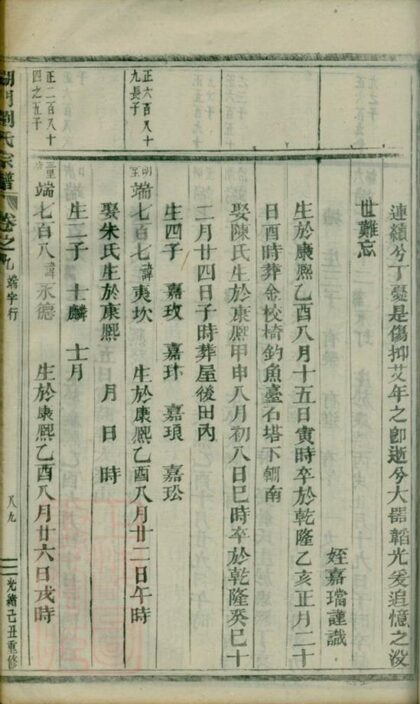 連續兮丁憂是傷抑艾年之卽逝兮大器韜光爰追憶之沒
世難忘
姪嘉璫謹識
生於康熙乙酉八月十五日寅時卒於乾隆乙亥正月二十
日酉時葬金校椅釣魚臺石塔下輞南
娶陳氏生於康熙甲申八月初八日巳時卒於乾隆癸巳十
二月廿四日子時葬屋後田丙
生四子 嘉玫 嘉玤 嘉琅 嘉玜
正六百八十
九長子
端七百七 諱夷坎 生於康熙乙酉八月廿二日午時
娶朱氏生於康熙 月 日 時
生二子 士麟 士月
正二百八十
四之五子
端七百八 諱永德 生於康熙乙酉八月廿六日戌時
門劉氏宗譜 卷之九 端字行 八九 光緒己丑重修